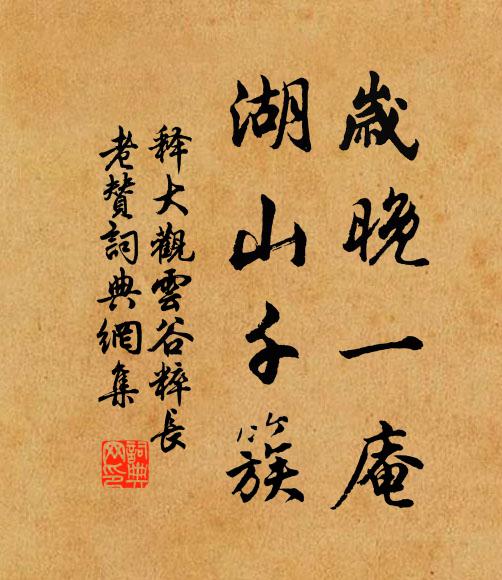 歲晚一庵
湖山千簇
释大觀雲谷粹長
老贊詞典網集
詞典